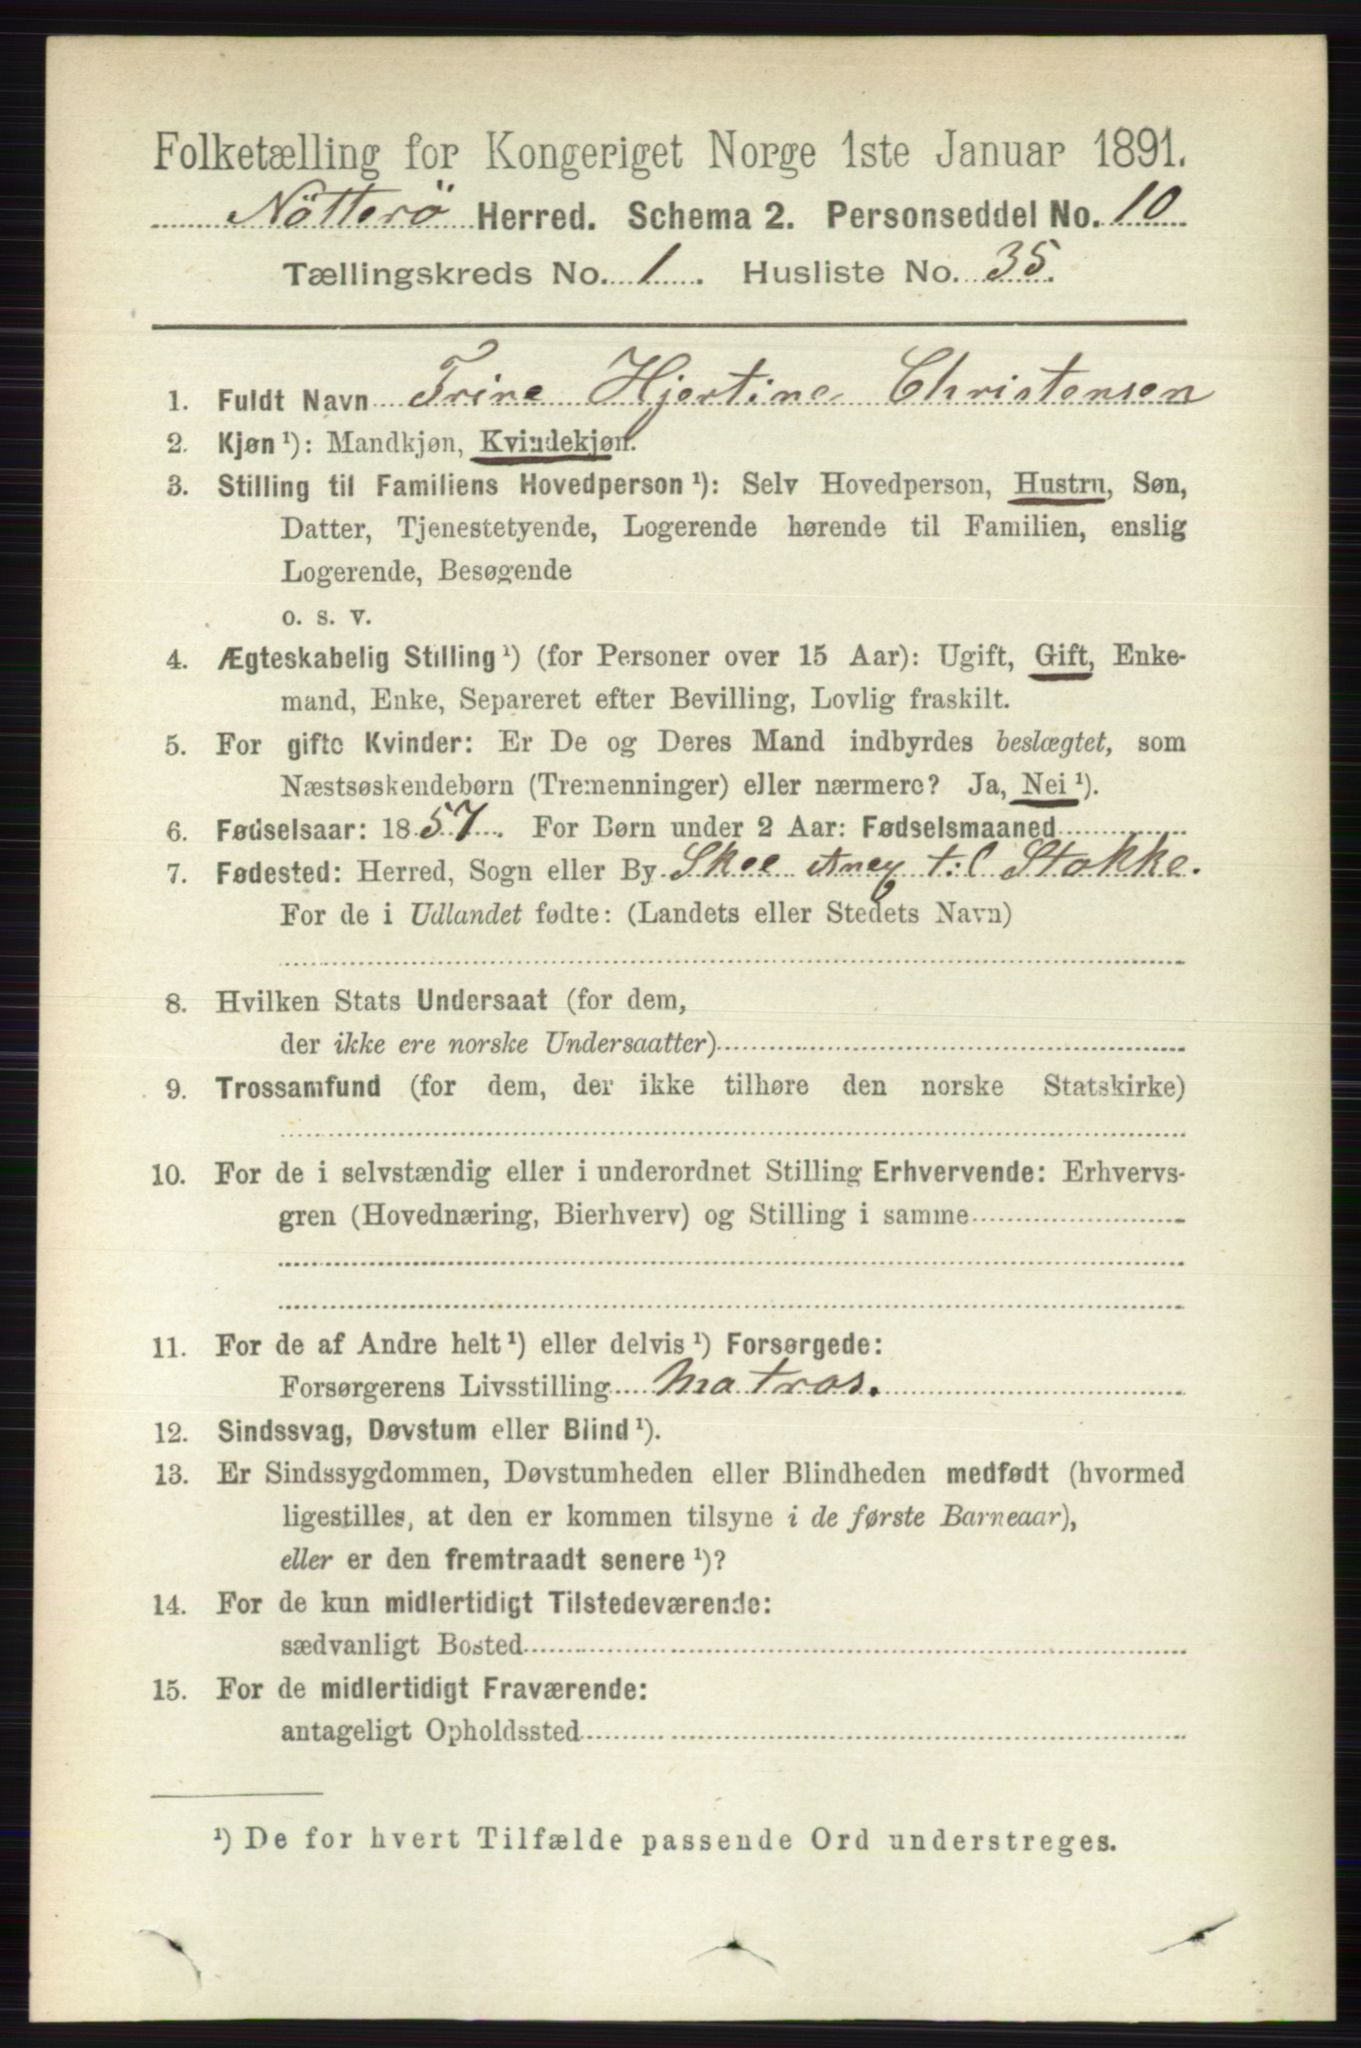 Folketælling for Kongeriget Norge 1ste Januar 1891.
Nötterö Herred. Schema 2. Personseddel No. 10
Tællingskreds No. 1. Husliste No. 35.
1. Fuldt Navn Trine Hjertine Christensen
2. Kjøn¹): Mandkjøn, Kvindekjøn.
3. Stilling til Familiens Hovedperson¹): Selv Hovedperson, Hustru, Søn,
Datter, Tjenestetyende, Logerende hørende til Familien, enslig
Logerende, Besøgende
o. s. v.
4. Ægteskabelig Stilling¹) (for Personer over 15 Aar): Ugift, Gift, Enke-
mand, Enke, Separeret efter Bevilling, Lovlig fraskilt.
5. For gifte Kvinder: Er De og Deres Mand indbyrdes beslægtet, som
Næstsøskendebørn (Tremenninger) eller nærmere? Ja, Nei¹).
6. Fødselsaar: 1857. For Børn under 2 Aar: Fødselsmaaned
7. Fødested: Herred, Sogn eller By Skee Anex til Stokke.
For de i Udlandet fødte: (Landets eller Stedets Navn)
8. Hvilken Stats Undersaat (for dem,
der ikke ere norske Undersaatter)
9. Trossamfund (for dem, der ikke tilhøre den norske Statskirke)
10. For de i selvstændig eller i underordnet Stilling Erhvervende: Erhvervs-
gren (Hovednæring, Bierhverv) og Stilling i samme
11. For de af Andre helt¹) eller delvis¹) Forsørgede:
Forsørgerens Livsstilling Matros.
12. Sindssvag, Døvstum eller Blind¹).
13. Er Sindssygdommen, Døvstumheden eller Blindheden medfødt (hvormed
ligestilles, at den er kommen tilsyne i de første Barneaar),
eller er den fremtraadt senere¹)?
14. For de kun midlertidigt Tilstedeværende:
sædvanligt Bosted
15. For de midlertidigt Fraværende:
antageligt Opholdssted
¹) De for hvert Tilfælde passende Ord understreges.